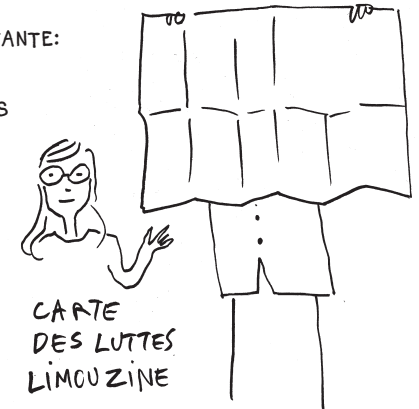 ANTE:
S
CARTE
DES LUTTES
LiMOUZiNE